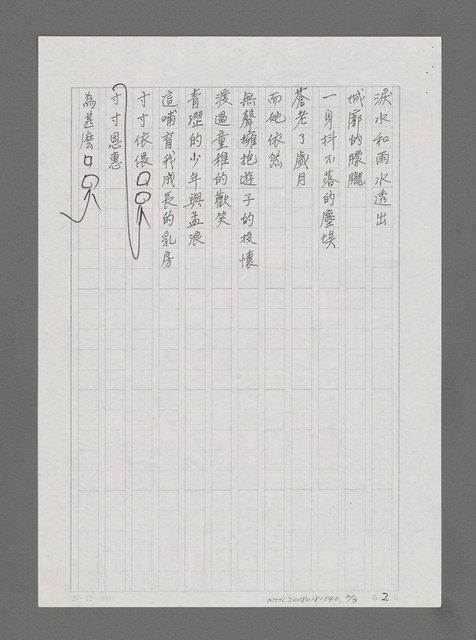 淚水和雨水透出
城廓的朦朧
一身抖不落的塵埃
蒼老了歲月
而她依然
無聲擁抱遊子的投懷
渡過童稚的歡笑
青澀的少年與孟浪
這哺育我成長的乳房
寸寸依偎
寸寸恩惠
為甚麼
NMTL20080181540
2